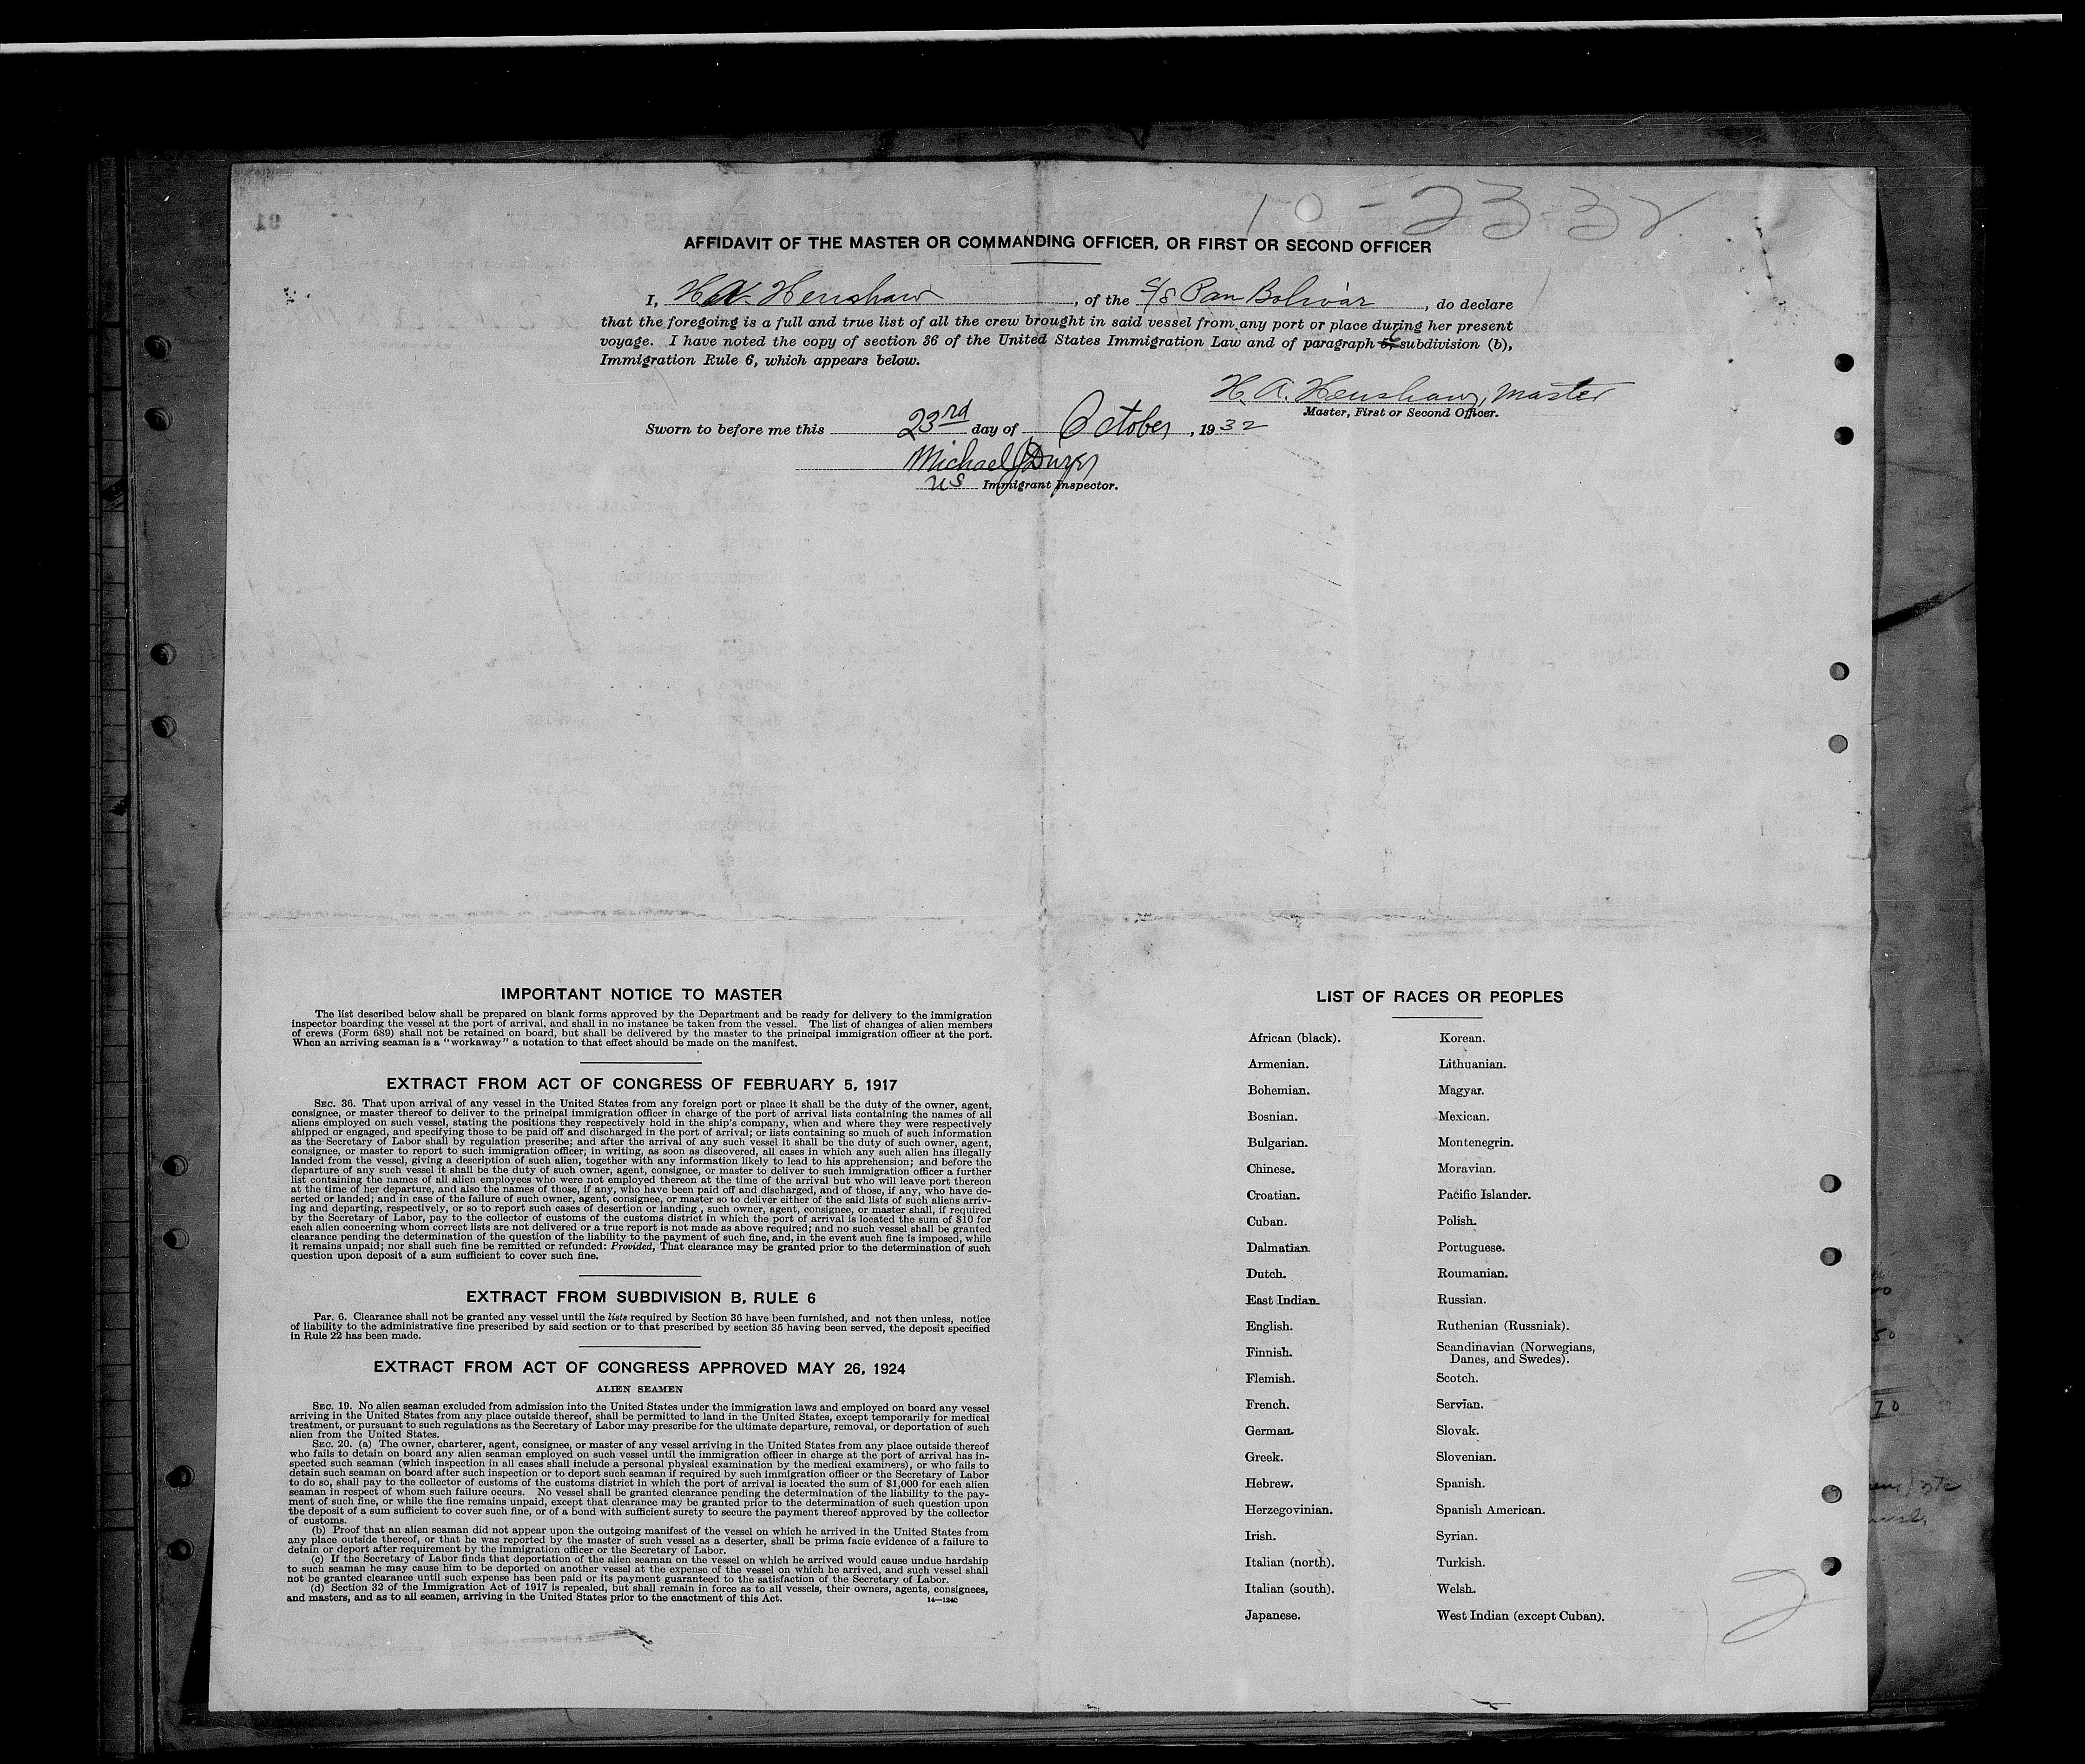 10-23-32
AFFIDAVIT OF THE MASTER OR COMMANDING OFFICER, OR FIRST OR SECOND OFFICER
I, H.A. Henshaw, of the S/S Pan Bolivar, do declare
that the foregoing is a full and true list of all the crew brought in said vessel from any port or place during her present
voyage. I have noted the copy of section 36 of the United States Immigration Law and of paragraph subdivision (b),
Immigration Rule 6, which appears below.
H. A. Henshaw, Master
Master, First or Second Officer.
Sworn to before me this 23rd day of October, 1932
Michael
US Immigrant Inspector.
IMPORTANT NOTICE TO MASTER
The list described below shall be prepared on blank forms approved by the Department and be ready for delivery to the immigration
inspector boarding the vessel at the port of arrival, and shall in no instance be taken from the vessel. The list of changes of alien members
of crews (Form 689) shall not be retained on board, but shall be delivered by the master to the principal immigration officer at the port.
When an arriving seaman is a "workaway" a notation to that effect should be made on the manifest.
EXTRACT FROM ACT OF CONGRESS OF FEBRUARY 5, 1917
SEC. 36. That upon arrival of any vessel in the United States from any foreign port or place it shall be the duty of the owner, agent,
consignee, or master thereof to deliver to the principal immigration officer in charge of the port of arrival lists containing the names of all
aliens employed on such vessel, stating the positions they respectively hold in the ship's company, when and where they were respectively
shipped or engaged, and specifying those to be paid off and discharged in the port of arrival; or lists containing so much of such information
as the Secretary of Labor shall by regulation prescribe; and after the arrival of any such vessel it shall be the duty of such owner, agent,
consignee, or master to report to such immigration officer; in writing, as soon as discovered, all cases in which any such alien has illegally
landed from the vessel, giving a description of such alien, together with any information likely to lead to his apprehension; and before the
departure of any such vessel it shall be the duty of such owner, agent, consignee, or master to deliver to such immigration officer a further
list containing the names of all alien employees who were not employed thereon at the time of the arrival but who will leave port thereon
at the time of her departure, and also the names of those, if any, who have been paid off and discharged, and of those, if any, who have de-
serted or landed; and in case of the failure of such owner, agent, consignee, or master so to deliver either of the said lists of such aliens arriv-
ing and departing, respectively, or so to report such cases of desertion or landing , such owner, agent, consignee, or master shall, if required
by the Secretary of Labor, pay to the collector of customs of the customs district in which the port of arrival is located the sum of $10 for
each alien concerning whom correct lists are not delivered or a true report is not made as above required; and no such vessel shall be granted
clearance pending the determination of the question of the liability to the payment of such fine, and, in the event such fine is imposed, while
it remains unpaid; nor shall such fine be remitted or refunded: Provided, That clearance may be granted prior to the determination of such
question upon deposit of a sum sufficient to cover such fine.
EXTRACT FROM SUBDIVISION B, RULE 6
Par. 6. Clearance shall not be granted any vessel until the lists required by Section 36 have been furnished, and not then unless, notice
of liability to the administrative fine prescribed by said section or to that prescribed by section 35 having been served, the deposit specified
in Rule 22 has been made.
EXTRACT FROM ACT OF CONGRESS APPROVED MAY 26, 1924
ALIEN SEAMEN
SEC. 19. No alien seaman excluded from admission into the United States under the immigration laws and employed on board any vessel
arriving in the United States from any place outside thereof, shall be permitted to land in the United States, except temporarily for medical
treatment, or pursuant to such regulations as the Secretary of Labor may prescribe for the ultimate departure, removal, or deportation of such
alien from the United States.
SEC. 20. (a) The owner, charterer, agent, consignee, or master of any vessel arriving in the United States from any place outside thereof
who fails to detain on board any alien seaman employed on such vessel until the immigration officer in charge at the port of arrival has in-
spected such seaman (which inspection in all cases shall include a personal physical examination by the medical examiners), or who fails to
detain such seaman on board after such inspection or to deport such seaman if required by such immigration officer or the Secretary of Labor
to do so, shall pay to the collector of customs of the customs district in which the port of arrival is located the sum of $1,000 for each alien
seaman in respect of whom such failure occurs. No vessel shall be granted clearance pending the determination of the liability to the pay-
ment of such fine, or while the fine remains unpaid, except that clearance may be granted prior to the determination of such question upon
the deposit of a sum sufficient to cover such fine, or of a bond with sufficient surety to secure the payment thereof approved by the collector
of customs.
(b) Proof that an alien seaman did not appear upon the outgoing manifest of the vessel on which he arrived in the United States from
any place outside thereof, or that he was reported by the master of such vessel as a deserter, shall be prima facie evidence of a failure to
detain or deport after requirement by the immigration officer or the Secretary of Labor.
(c) If the Secretary of Labor finds that deportation of the alien seaman on the vessel on which he arrived would cause undue hardship
to such seaman he may cause him to be deported on another vessel at the expense of the vessel on which he arrived, and such vessel shall
not be granted clearance until such expense has been paid or its payment guaranteed to the satisfaction of the Secretary of Labor.
(d) Section 32 of the Immigration Act of 1917 is repealed, but shall remain in force as to all vessels, their owners, agents, consignees,
and masters, and as to all seamen, arriving in the United States prior to the enactment of this Act.
14—1240
LIST OF RACES OR PEOPLES
African (black).
Armenian.
Bohemian.
Bosnian.
Bulgarian.
Chinese.
Croatian.
Cuban.
Dalmatian.
Dutch.
East Indian.
English.
Finnish.
Flemish.
French.
German.
Greek.
Hebrew.
Herzegovinian.
Irish.
Italian (north).
Italian (south).
Japanese.
Korean.
Lithuanian.
Magyar.
Mexican.
Montenegrin.
Moravian.
Pacific Islander.
Polish.
Portuguese.
Roumanian.
Russian.
Ruthenian (Russniak).
Scandinavian (Norwegians,
Danes, and Swedes).
Scotch.
Servian.
Slovak.
Slovenian.
Spanish.
Spanish American.
Syrian.
Turkish.
Welsh.
West Indian (except Cuban).
2